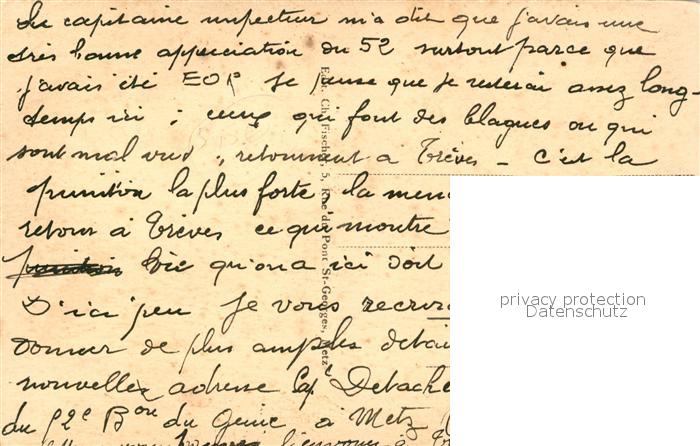 Le capitaine inspecteur m'a dit que j'avais une
très bonne appreciation du 52 surtout parce que
j'avais été EOR Je pense que je resterai assez long-
temps ici ; ceux qui font des blagues ou qui
sont mal vus, retournent a Trèves - C'est la
punition la plus forte la
retour à Trèves ce qui montre
vie qu'on a ici doit
D'ici peu je vous
donner de plus amples
nouvelle adresse Cap
du Bon du Genie à Metz
Edit. Ch. Fischer, 5, Rue du Pont St-Georges, Metz
privacy protection
Datenschutz